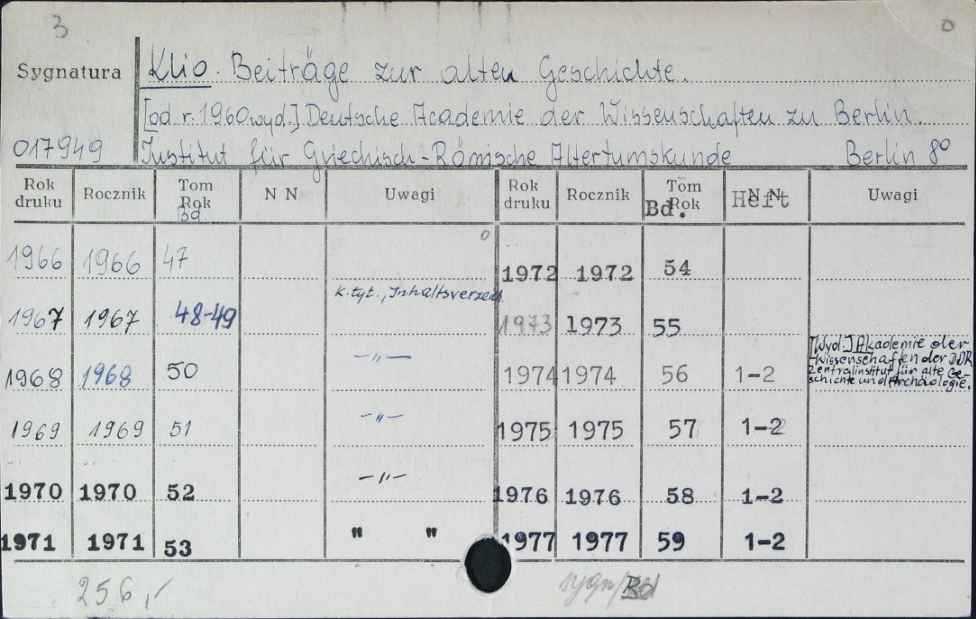 3 0
Sygnatura Klio. Beiträge zur alten Geschichte.
[od r. 1960 wyd.] Deutsche Academie der Wissenschaften zu Berlin.
017949 Institut für Griechisch-Römische Altertumskunde Berlin 8°
Rok druku Rocznik Tom Rok Bd N N Uwagi Rok druku Rocznik Tom Rok Bd. N N Heft Uwagi
1966 1966 47 0 1972 1972 54
1967 1967 48-49 K. tyt., Inhaltsverzeich. 1973 1973 55
1968 1968 50 —„— 1974 1974 56 1-2 [Wyd.] Akademie der
Wissenschaften der DDR
Zentralinstitut für alte Ge-
schichte und Archäologie.
1969 1969 51 —„— 1975 1975 57 1-2
1970 1970 52 —„— 1976 1976 58 1-2
1971 1971 53 " " 1977 1977 59 1-2
256,- sygn/Bd